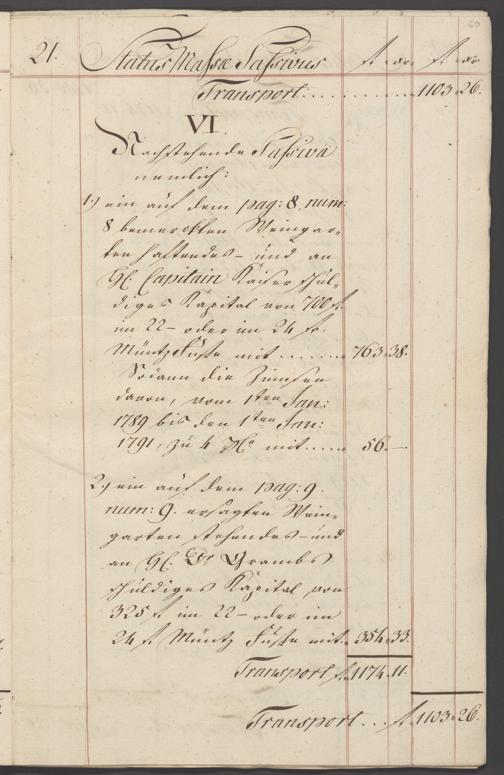 60
21. Status Massæ Passivus f. xr f. xr
Transport . . . . . . . . . . 1103. 26.
VI.
Nachstehende Passiva
nemlich:
1.) ein auf dem pag: 8. num:
8 bemerckten Weingar-
ten haftendes - und an
H: Capitain Kaiser schul-
diges Kapital von 700 f.
im 22 - oder im 24 fr.
Müntz Fuße mit . . . . . . . 763. 38.
Sodann die Zinnsen
davon, vom 1ten Jan:
1789 bis den 1ten Jan:
1791, zu 4 mit . . . . . 56. —
2.) ein auf dem pag: 9.
num: 9. ersagten Wein-
garten stehendes - und
an H: Dr Grambs
schuldiges Kapital von
325 f. im 22 - oder im
24 f. Müntz Fuße mit. 354. 33.
Transport f. 1174. 11.
Transport . . . f. 1103. 26.